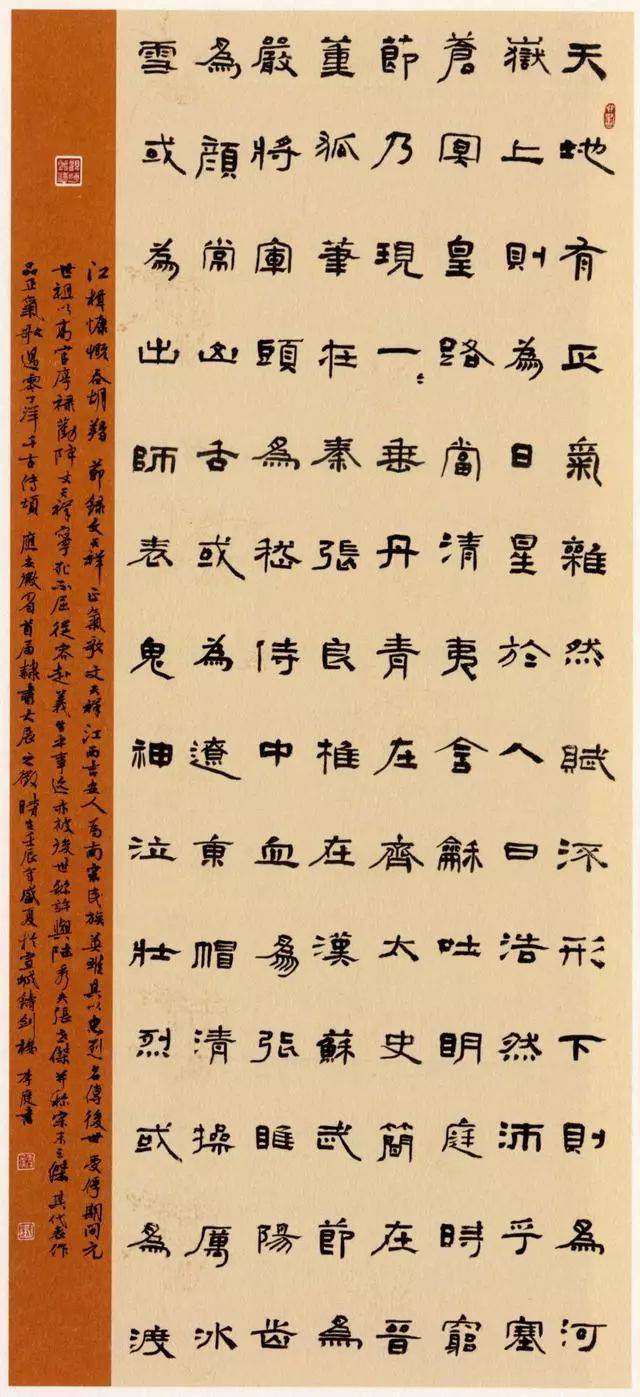 天地有正氣雜然賦流形下則為河
嶽上則為日星於人曰浩然沛乎塞
蒼冥皇路當清夷含龢吐明庭時窮
節乃現一垂丹青在齊太史簡在晉
董狐筆在秦張良椎在漢蘇武節為
嚴將軍頭為嵇侍中血為張睢陽齒
為顏常山舌或為遼東帽清操厲冰
雪或為出師表鬼神泣壯烈或為渡
江楫慷慨吞胡羯 節錄文天祥正氣歌 文天祥江西吉安人為南宋民族英雄其以忠烈名傳後世受俘期間元
世祖以高官厚祿勸降文天祥寧死不屈從容赴義生平事迹亦被後世称許與陸秀夫張世傑并称宋末三傑其代表作
品正氣歌過零丁洋千古傳頌 應安徽省首屆隸書大展之徵 時在壬辰年盛夏於宣城鑄劍樓 李庭書